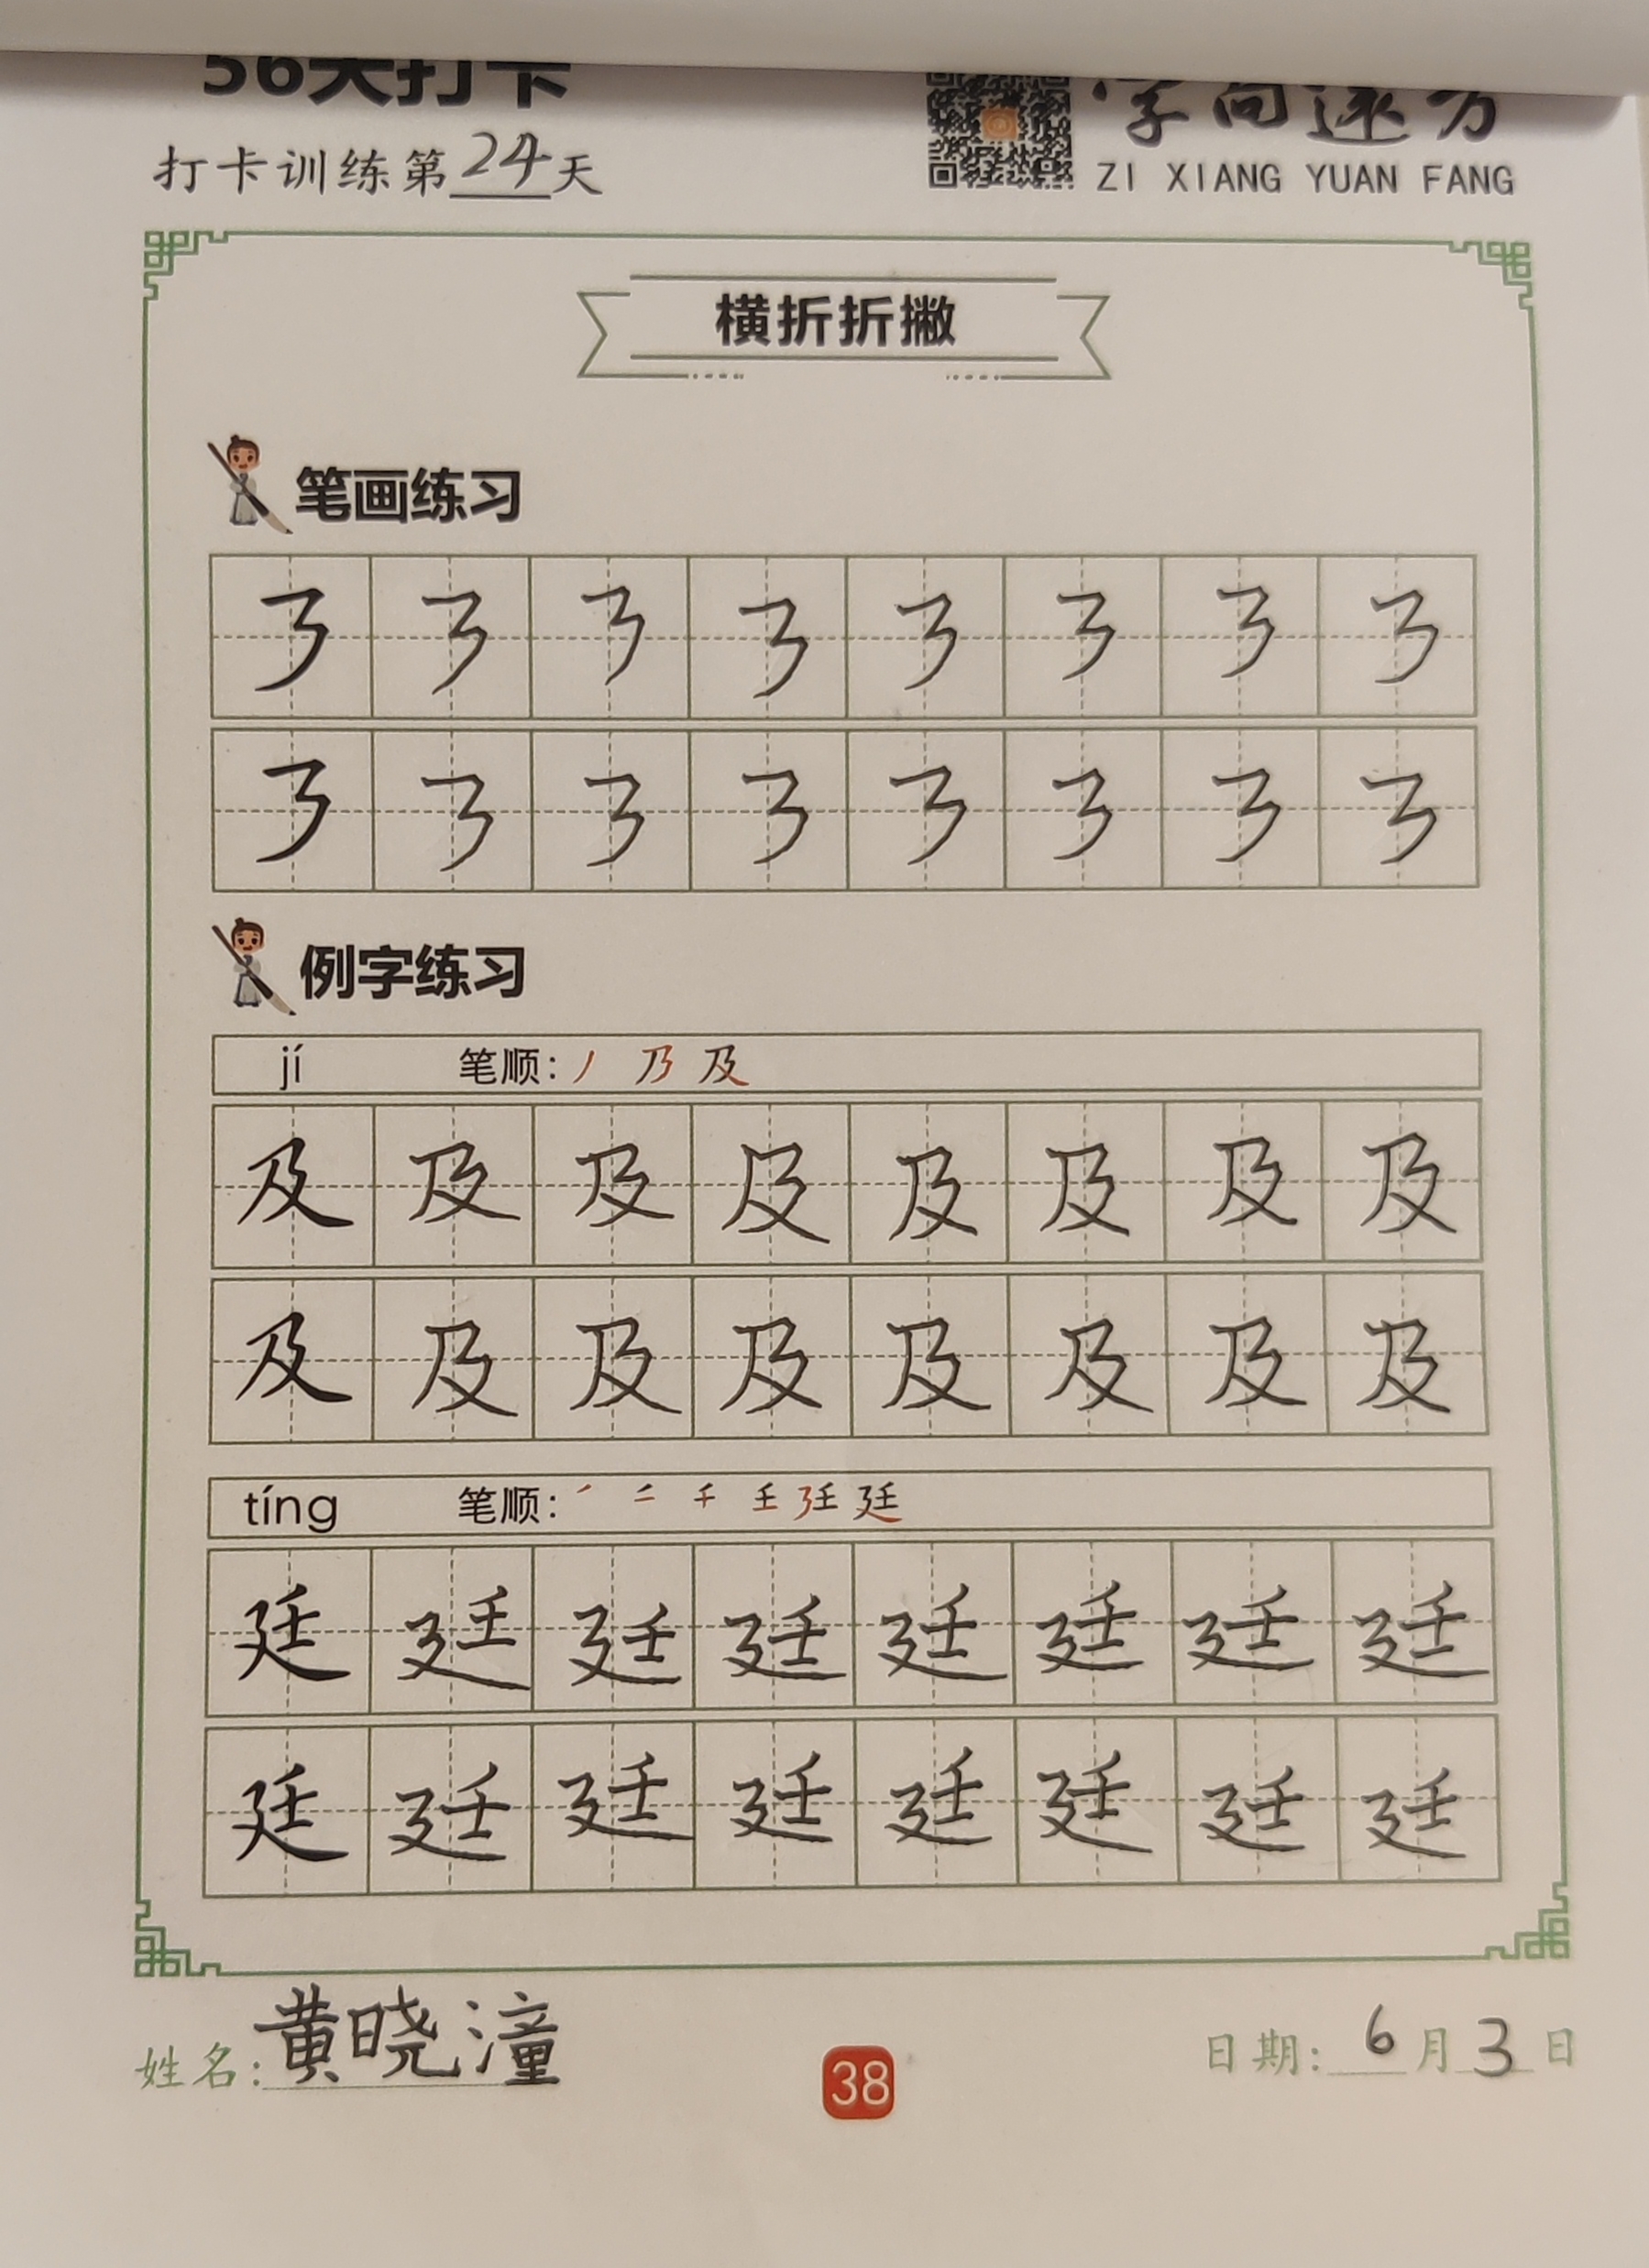 56天打卡
打卡训练第24天
字向远方
ZI XIANG YUAN FANG
横折折撇
笔画练习
㇋ ㇋ ㇋ ㇋ ㇋ ㇋ ㇋ ㇋
㇋ ㇋ ㇋ ㇋ ㇋ ㇋ ㇋ ㇋
例字练习
jí 笔顺: 丿 乃 及
及 及 及 及 及 及 及 及
及 及 及 及 及 及 及 及
tíng 笔顺:
廷 廷 廷 廷 廷 廷 廷 廷
廷 廷 廷 廷 廷 廷 廷 廷
姓名:黄晓潼
38
日期:6月3日